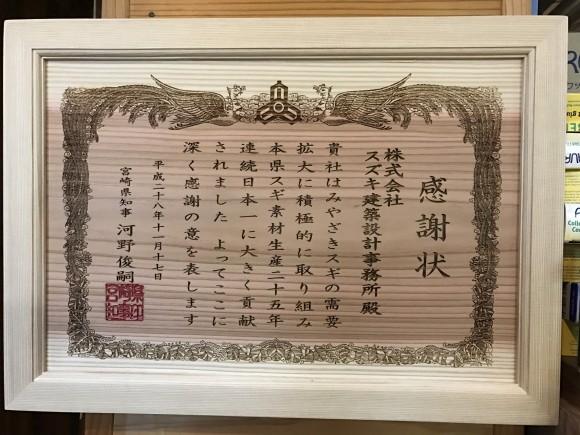 感謝状
株式会社
スズキ建築設計事務所 殿
貴社はみやざきスギの需要
拡大に積極的に取り組み
本県スギ素材生産二十五年
連続日本一に大きく貢献
されました よってここに
深く感謝の意を表します
平成二十八年十一月十七日
宮崎県知事 河野俊嗣